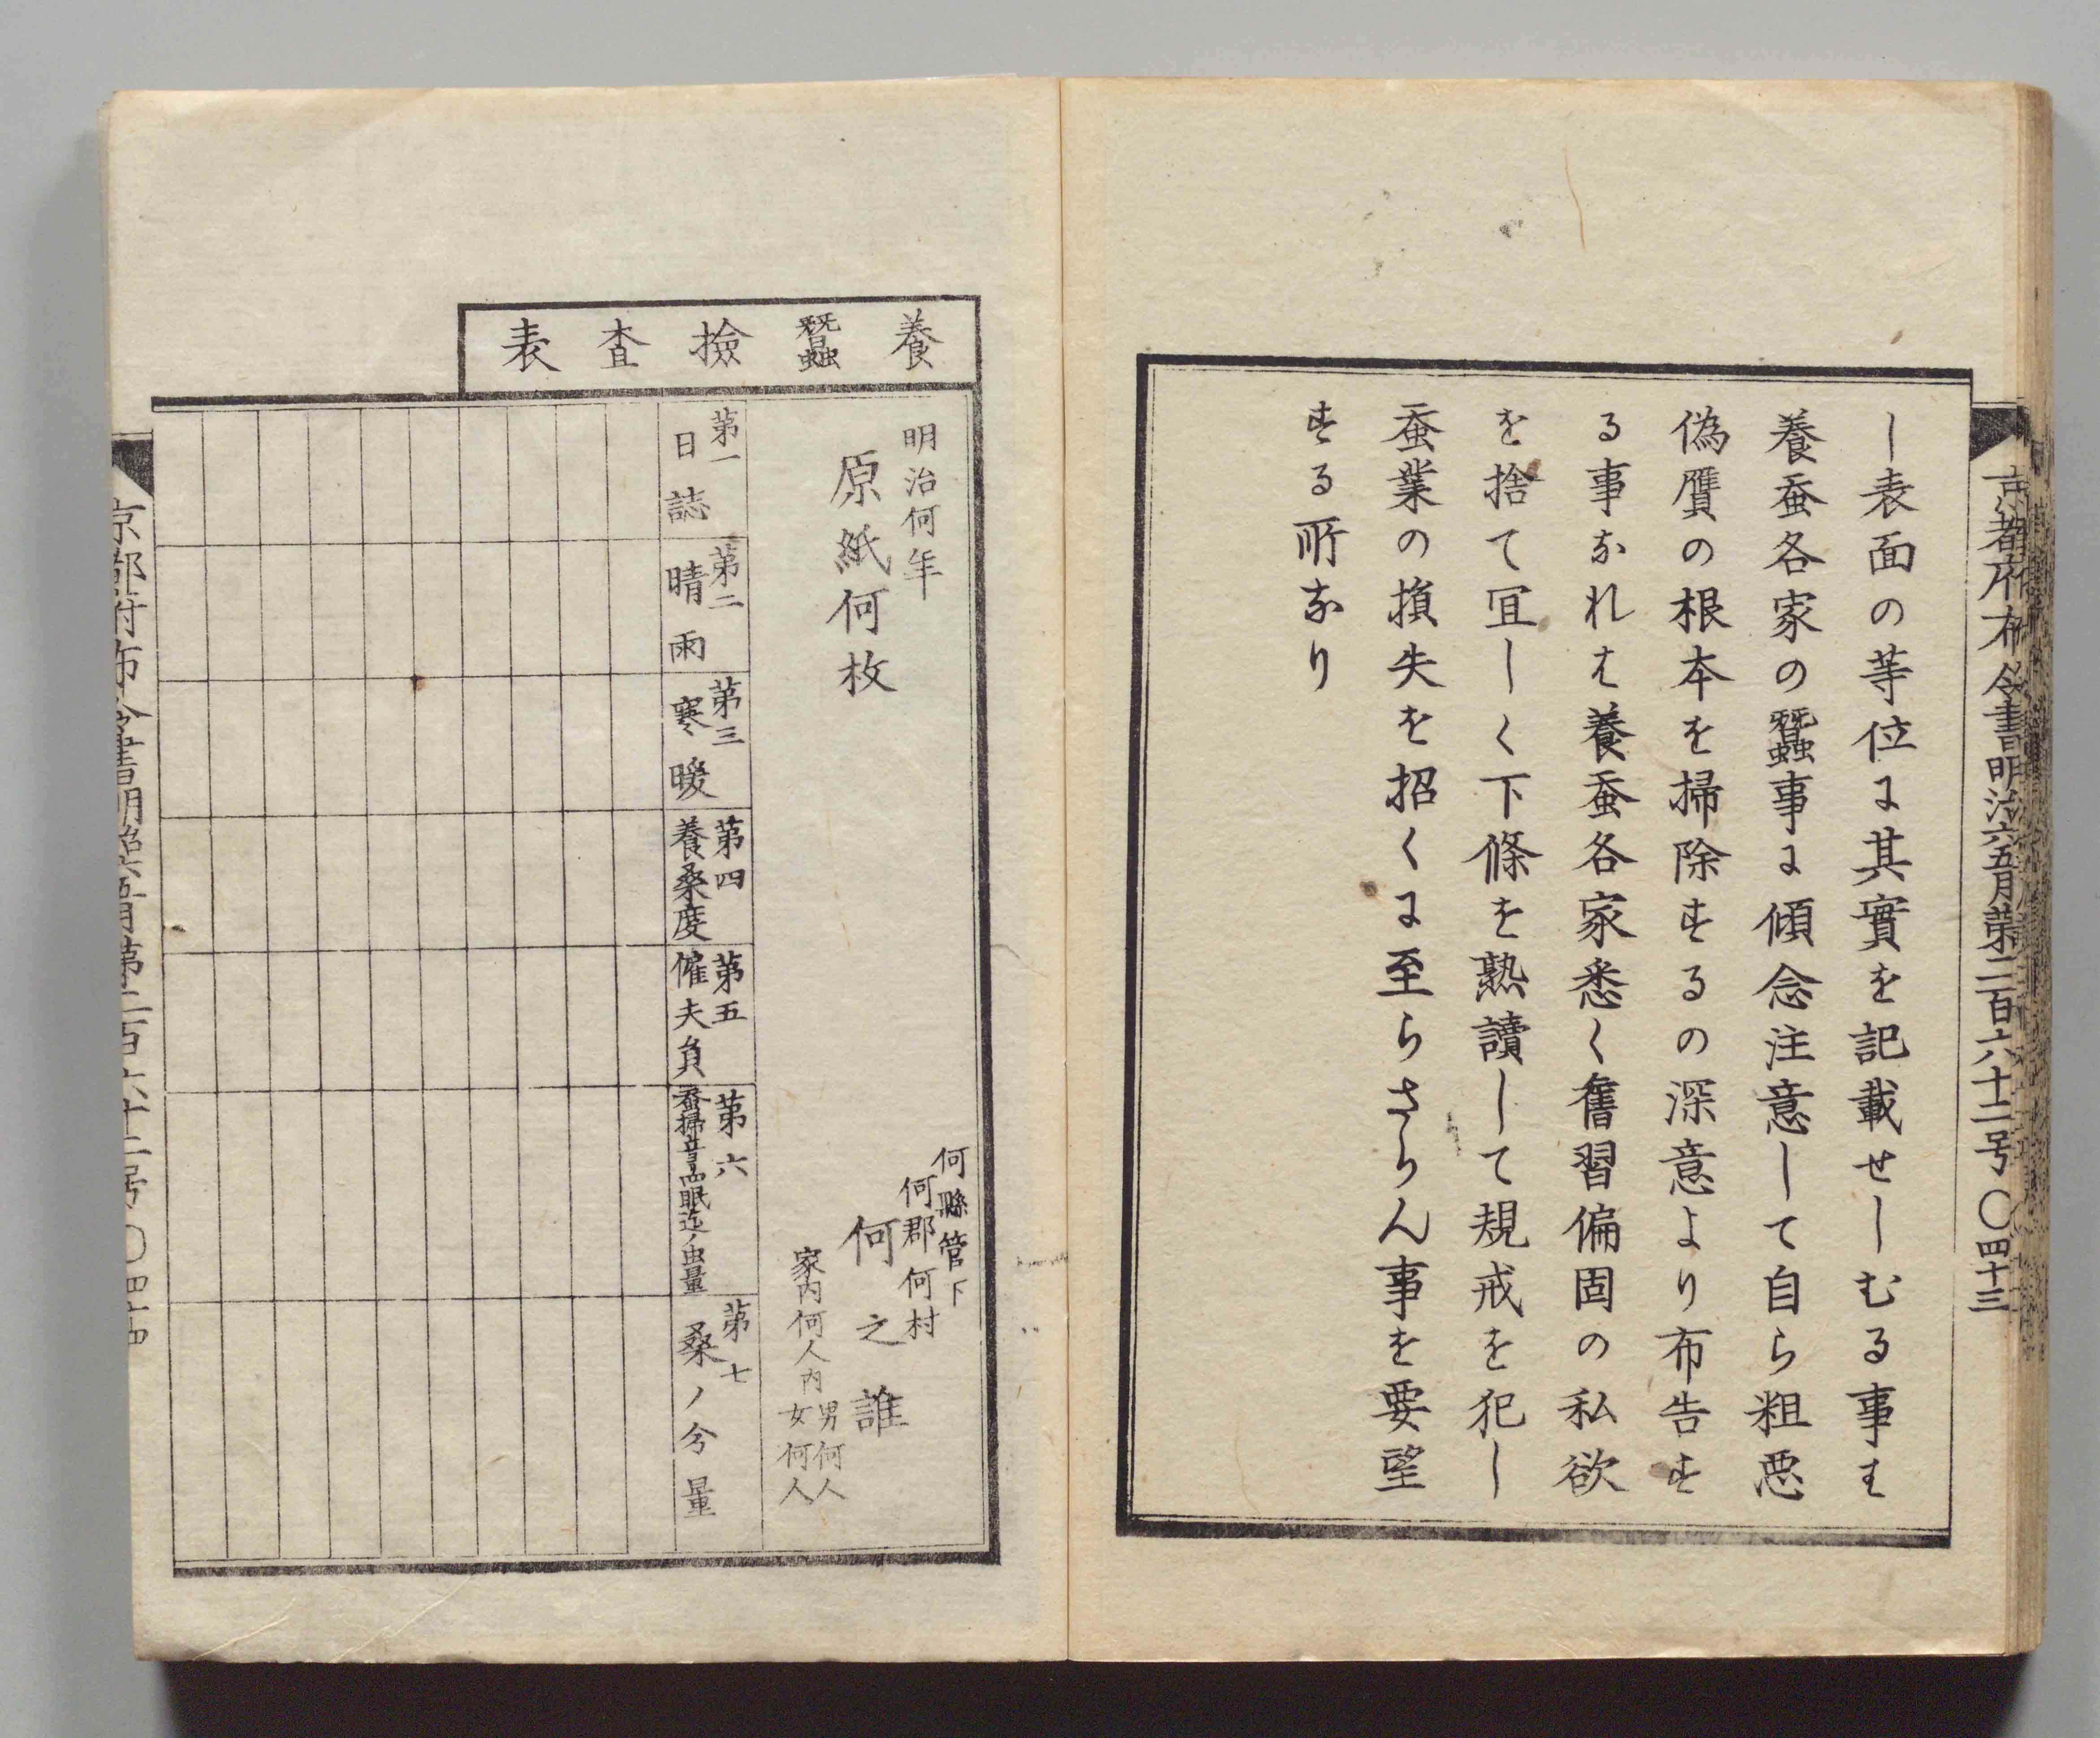 京都府布令書明治六五月第二百六十二号〇四十三
し表面の等位に其實を記載せしむる事は
養蚕各家の蠶事に傾念注意して自ら粗悪
偽贋の根本を掃除するの深意より布告す
る事なれは養蚕各家悉く舊習偏固の私欲
を捨て冝しく下條を熟讀して規戒を犯し
蚕業の損失を招くに至らさらん事を要望
する所なり
養蠶撿査表
明治何年
原紙何枚
何縣管下
何郡何村
何之誰
家内何人内
男何人
女何人
第一
日誌
第二
晴雨
第三
寒暖
第四
養桑度
第五
傭夫負
第六
蚕掃音ゟ四眠迄ノ虫量
第七
桑ノ分量
京都府布令書明治六五月第二百六十二号〇四十四